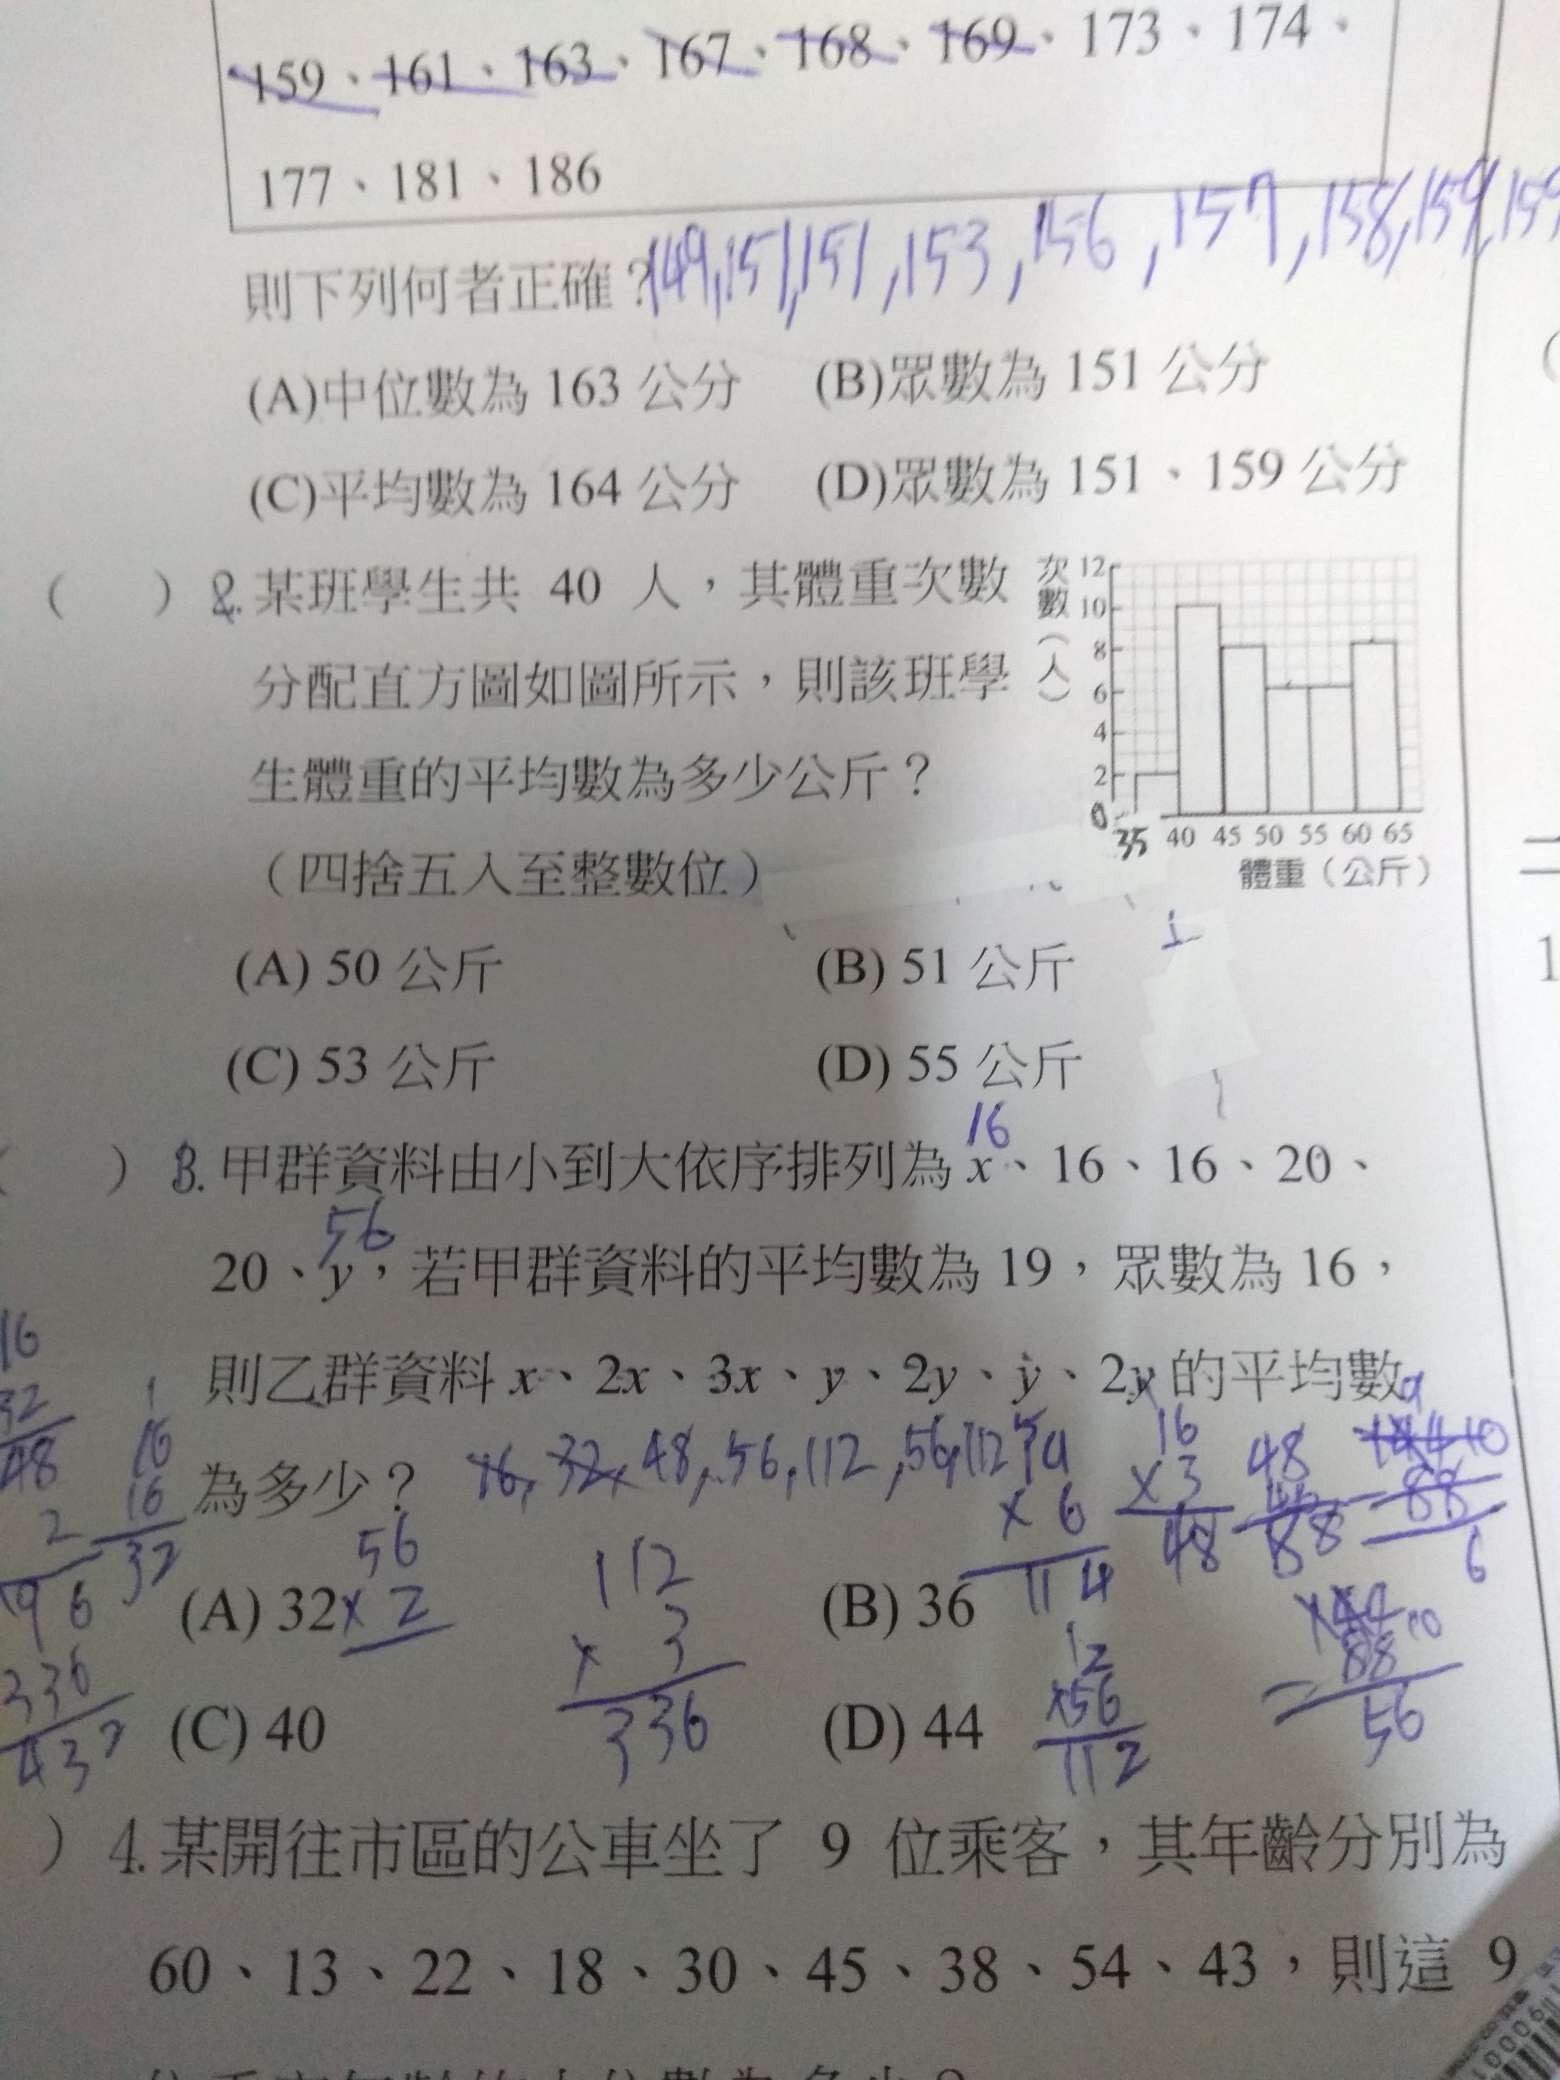 159、161、163、167、168、169、173、174、
177、181、186
則下列何者正確？149,151,151,153,156,157,158,159,159
(A)中位數為 163 公分 (B)眾數為 151 公分
(C)平均數為 164 公分 (D)眾數為 151、159 公分
( ) 2. 某班學生共 40 人，其體重次數
分配直方圖如圖所示，則該班學
生體重的平均數為多少公斤？
（四捨五入至整數位）
次數（人）
12
10
8
6
4
2
0
35 40 45 50 55 60 65
體重（公斤）
(A) 50 公斤 (B) 51 公斤
(C) 53 公斤 (D) 55 公斤
16
) 3. 甲群資料由小到大依序排列為 x、16、16、20、
56
20、y，若甲群資料的平均數為 19，眾數為 16，
則乙群資料 x、2x、3x、y、2y、y、2y 的平均數
為多少？ 16, 32, 48, 56, 112, 56, 112
16
32
48
2
96
336
432
1
16
16
32
56
× 2
112
× 3
336
× 6
114
16
× 3
48
48
88
88
6
12
×56
112
88
56
(A) 32 (B) 36
(C) 40 (D) 44
) 4. 某開往市區的公車坐了 9 位乘客，其年齡分別為
60、13、22、18、30、45、38、54、43，則這 9